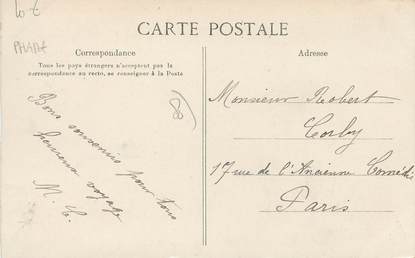 10 €
PHARE
CARTE POSTALE
Correspondance
Tous les pays étrangers n'acceptent pas la
correspondance au recto, se renseigner à la Poste
80
Bons souvenirs pour tous
heureux voyage
M. C.
Adresse
Monsieur Robert
Corby
17 rue de l'Ancienne Comédie
Paris